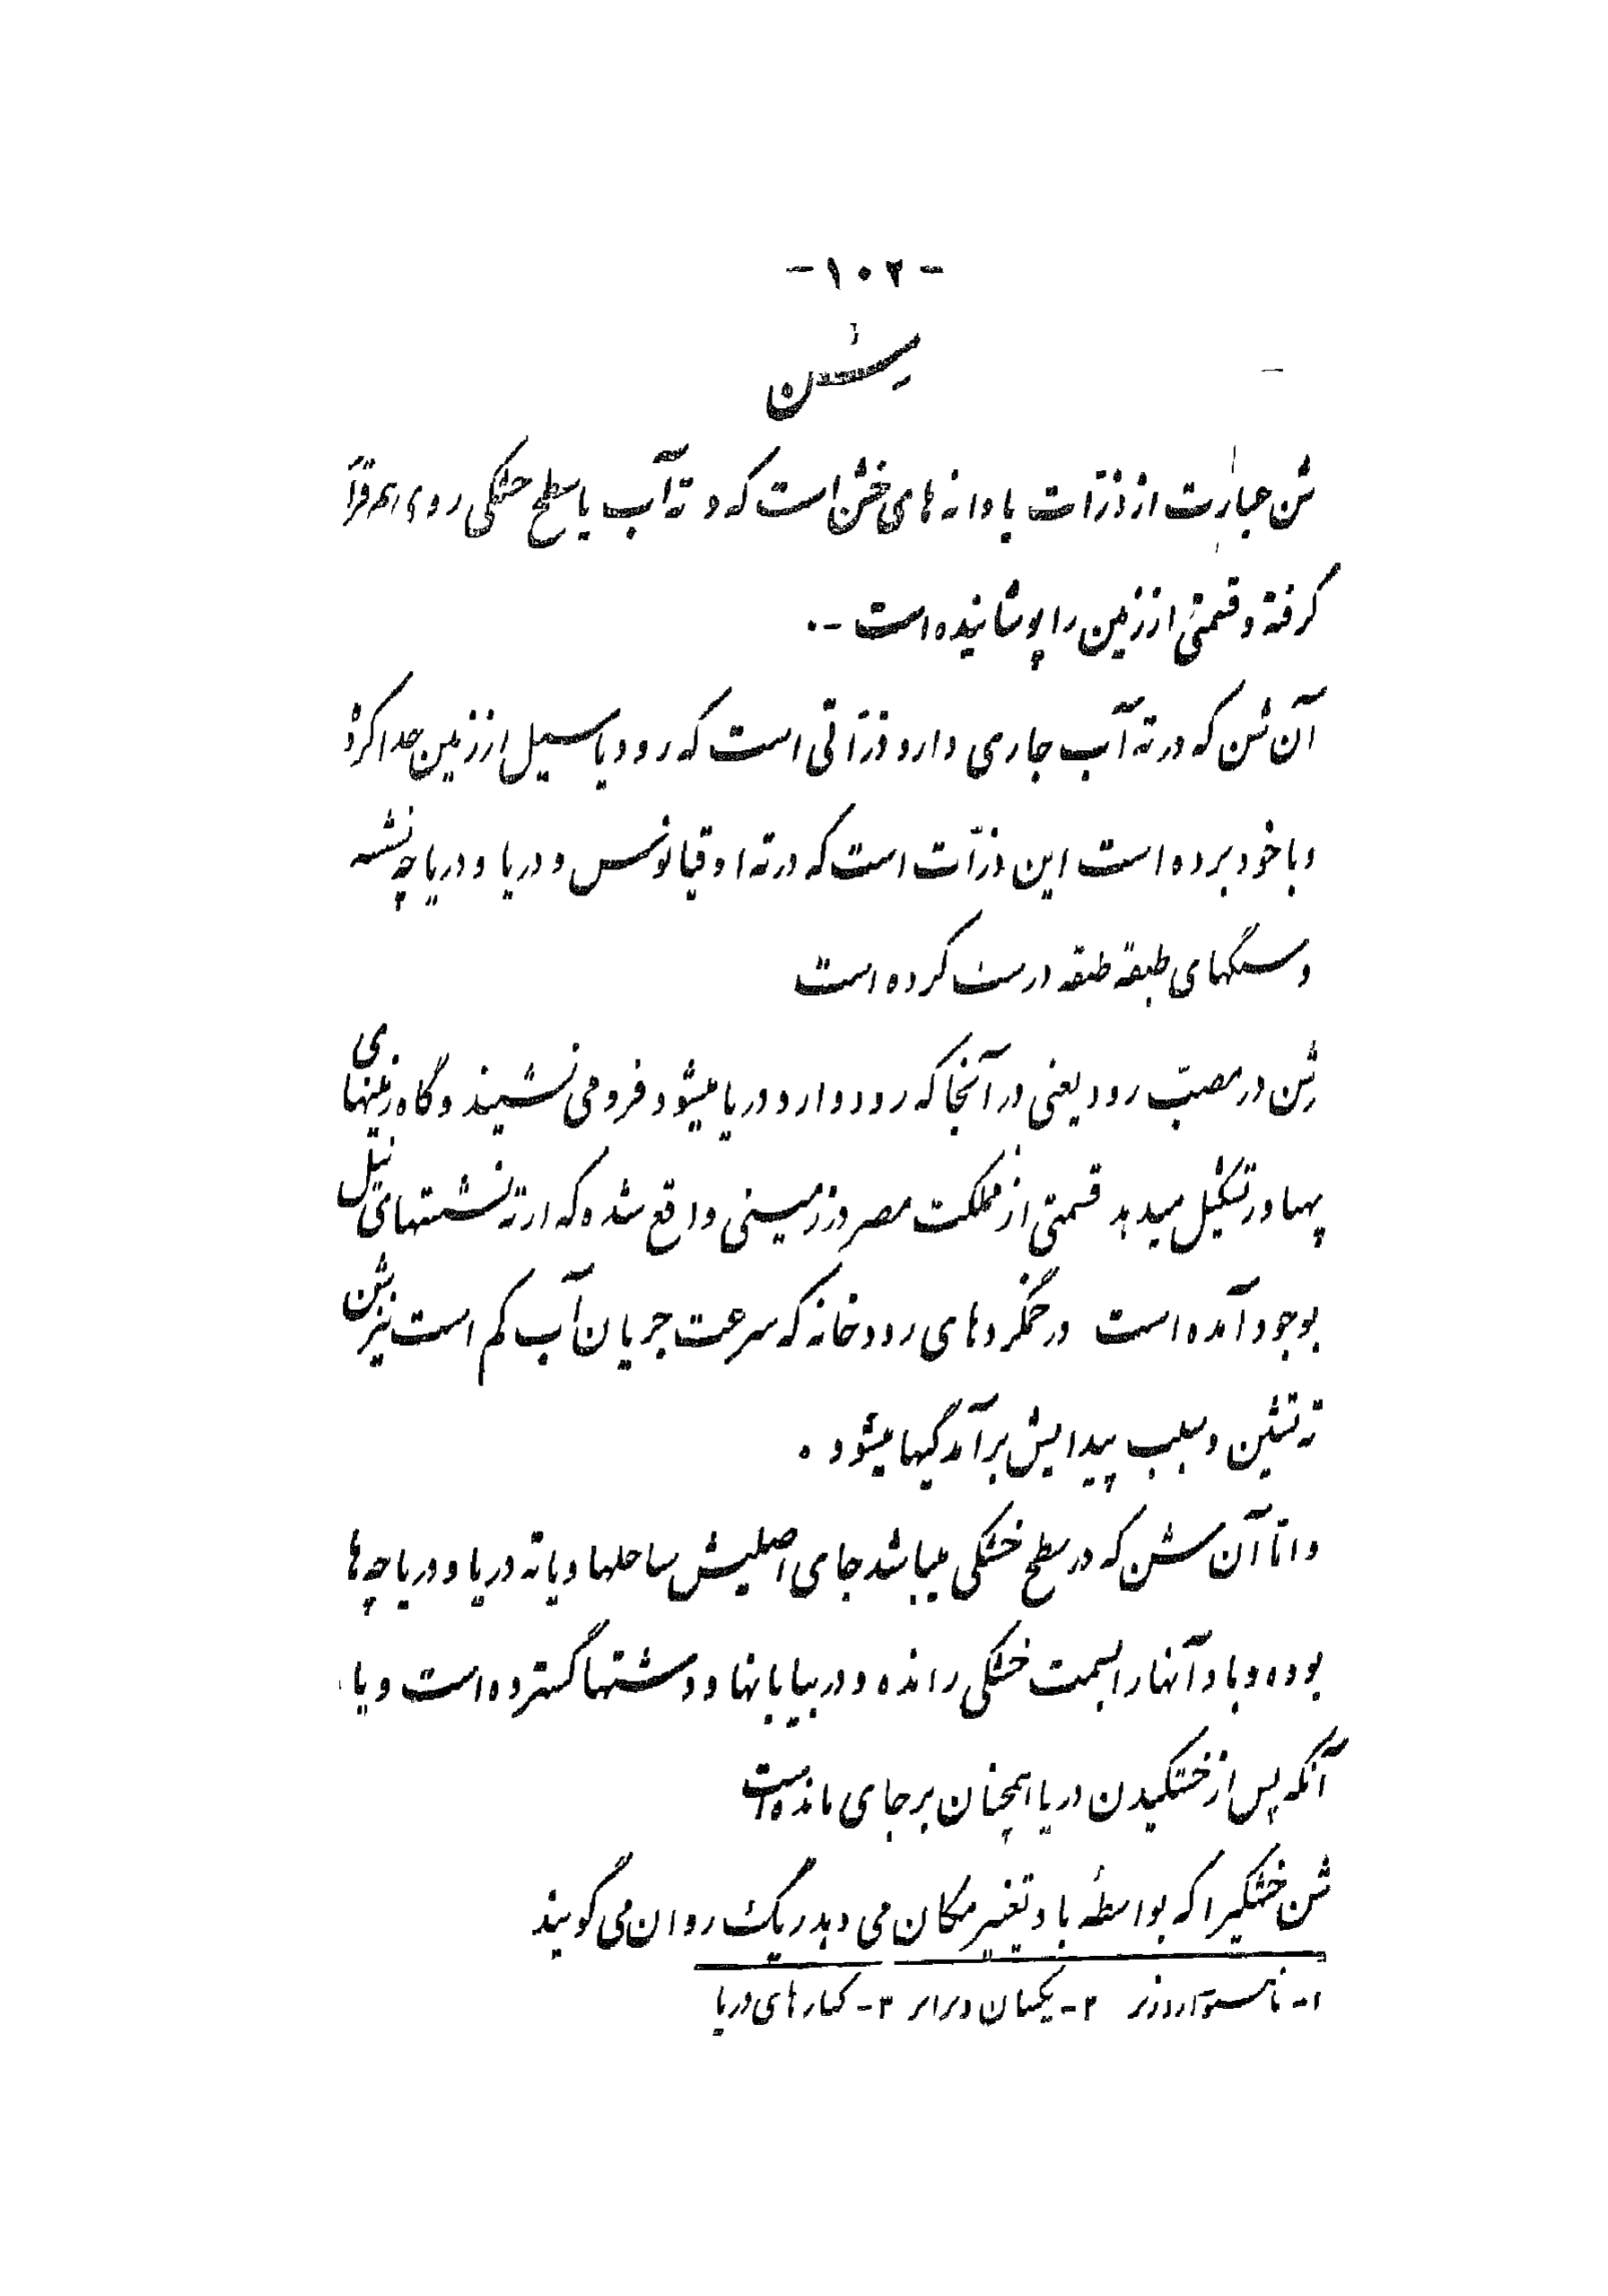 -۱۰۲-
شن
شن عبارت از ذرّات یا دانه های خشن است که در ته آب یا سطح خشکی روی هم قرار
گرفته و قسمتی از زمین را پوشانیده است -.
آن شن که در ته آب جاری دارد ذرّاتی است که رود یا سیل از زمین جدا کرده
و با خود برده است این ذرّات است که در ته اوقیانوس و دریا و دریاچه نشسته
و سنگهای طبقه طبقه درست کرده است
شن در مصبّ رود یعنی در آنجا که رود وارد دریا میشود فرو می نشیند و گاه زمینهای
پهناور تشکیل میدهد قسمتی از مملکت مصر در زمینی واقع شده که از ته نشستهای نیل
بوجود آمده است در خمگردهای رودخانه که سرعت جریان آب کم است نیز شن
ته نشین و سبب پیدایش برآمدگیها میشود .
و امّا آن شن که در سطح خشکی میباشد جای اصلیش ساحلها و یا ته دریا و دریاچه ها
بوده و باد آنها را بسمت خشکی رانده و در بیابانها و دشتها گسترده است و یا
آنکه پس از خشکیدن دریا همچنان بر جای مانده است
شن خشکیرا که بواسطهٔ باد تغییر مکان می دهد ریگ روان می گویند
۱- ۲- یکسان و برابر ۳- کنارهای دریا